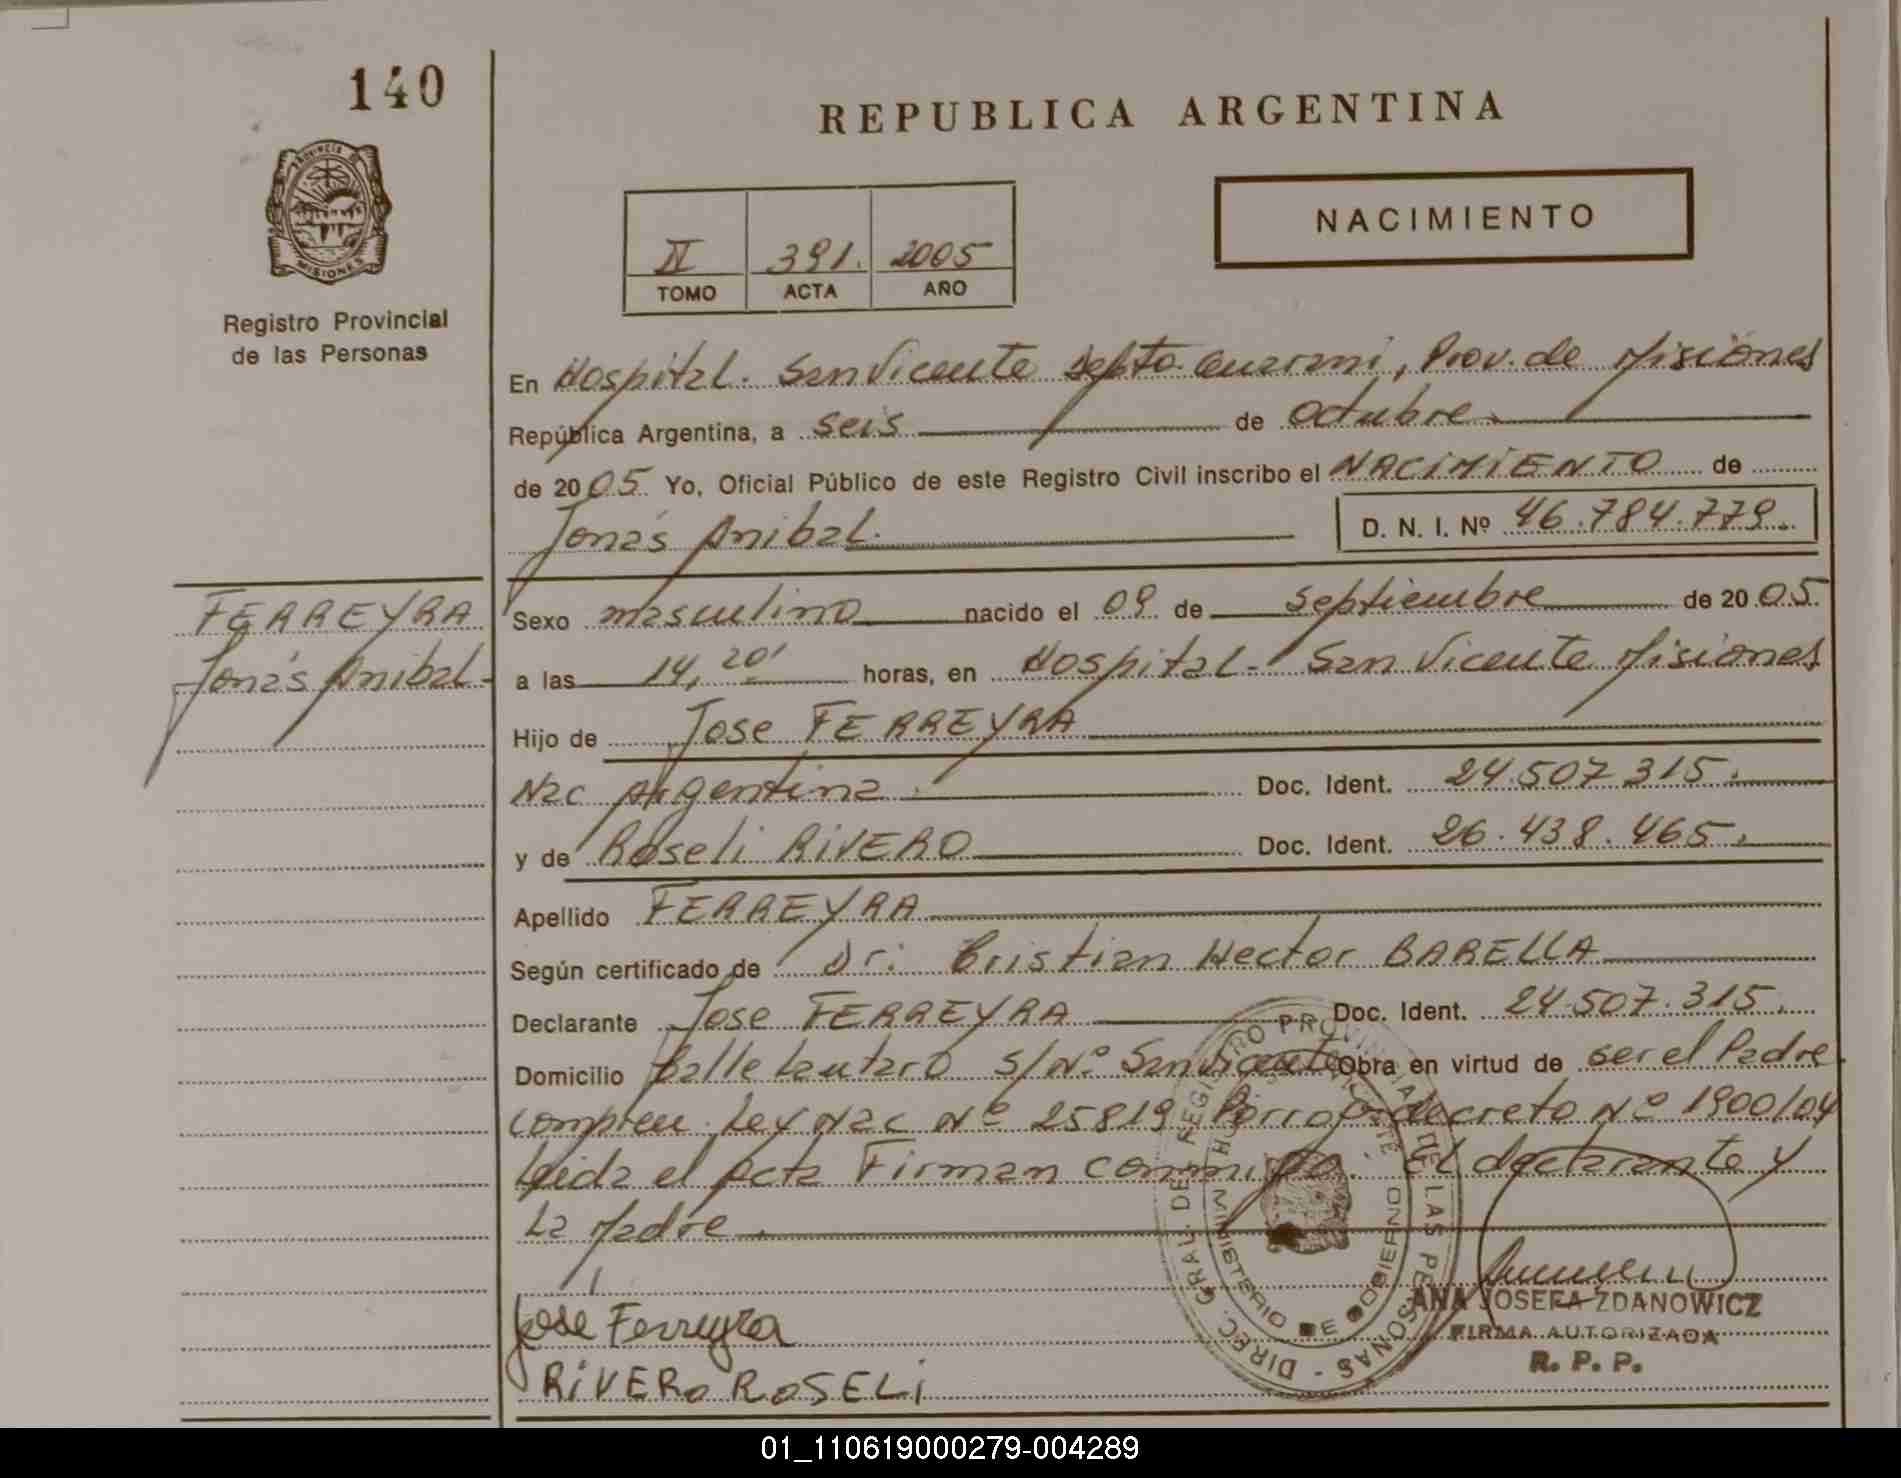 140
REPUBLICA ARGENTINA
PROVINCIA DE
MISIONES
Registro Provincial
de las Personas
NACIMIENTO
II 391. 2005
TOMO ACTA AÑO
En Hospital. San Vicente Depto. Guarani, Prov. de Misiones
República Argentina, a seis de Octubre
de 2005 Yo, Oficial Público de este Registro Civil inscribo el NACIMIENTO de
Jonás Anibal. D. N. I. Nº 46.784.779.
FERREYRA
Jonás Anibal-
Sexo masculino nacido el 09 de Septiembre de 2005.
a las 14,20' horas, en Hospital- San Vicente Misiones
Hijo de Jose FERREYRA
Nac Argentina Doc. Ident. 24.507.315.
y de Roseli RIVERO Doc. Ident. 26.438.465.
Apellido FERREYRA
Según certificado de Dr: Cristian Hector BARELLA
Declarante Jose FERREYRA Doc. Ident. 24.507.315.
Domicilio Calle Lautaro S/Nº San Vicente Obra en virtud de ser el Padre
Ley Nac Nº 25819 decreto Nº 1900/04
Leida el Acta Firman conmigo. El declarante y
La Madre.
DIREC. GRAL. DE REGISTRO PROVINCIAL DE LAS PERSONAS -
MINISTERIO DE GOBIERNO
José Ferreyra
RIVERO ROSELI
ANA JOSEFA ZDANOWICZ
FIRMA AUTORIZADA
R. P. P.
01_110619000279-004289